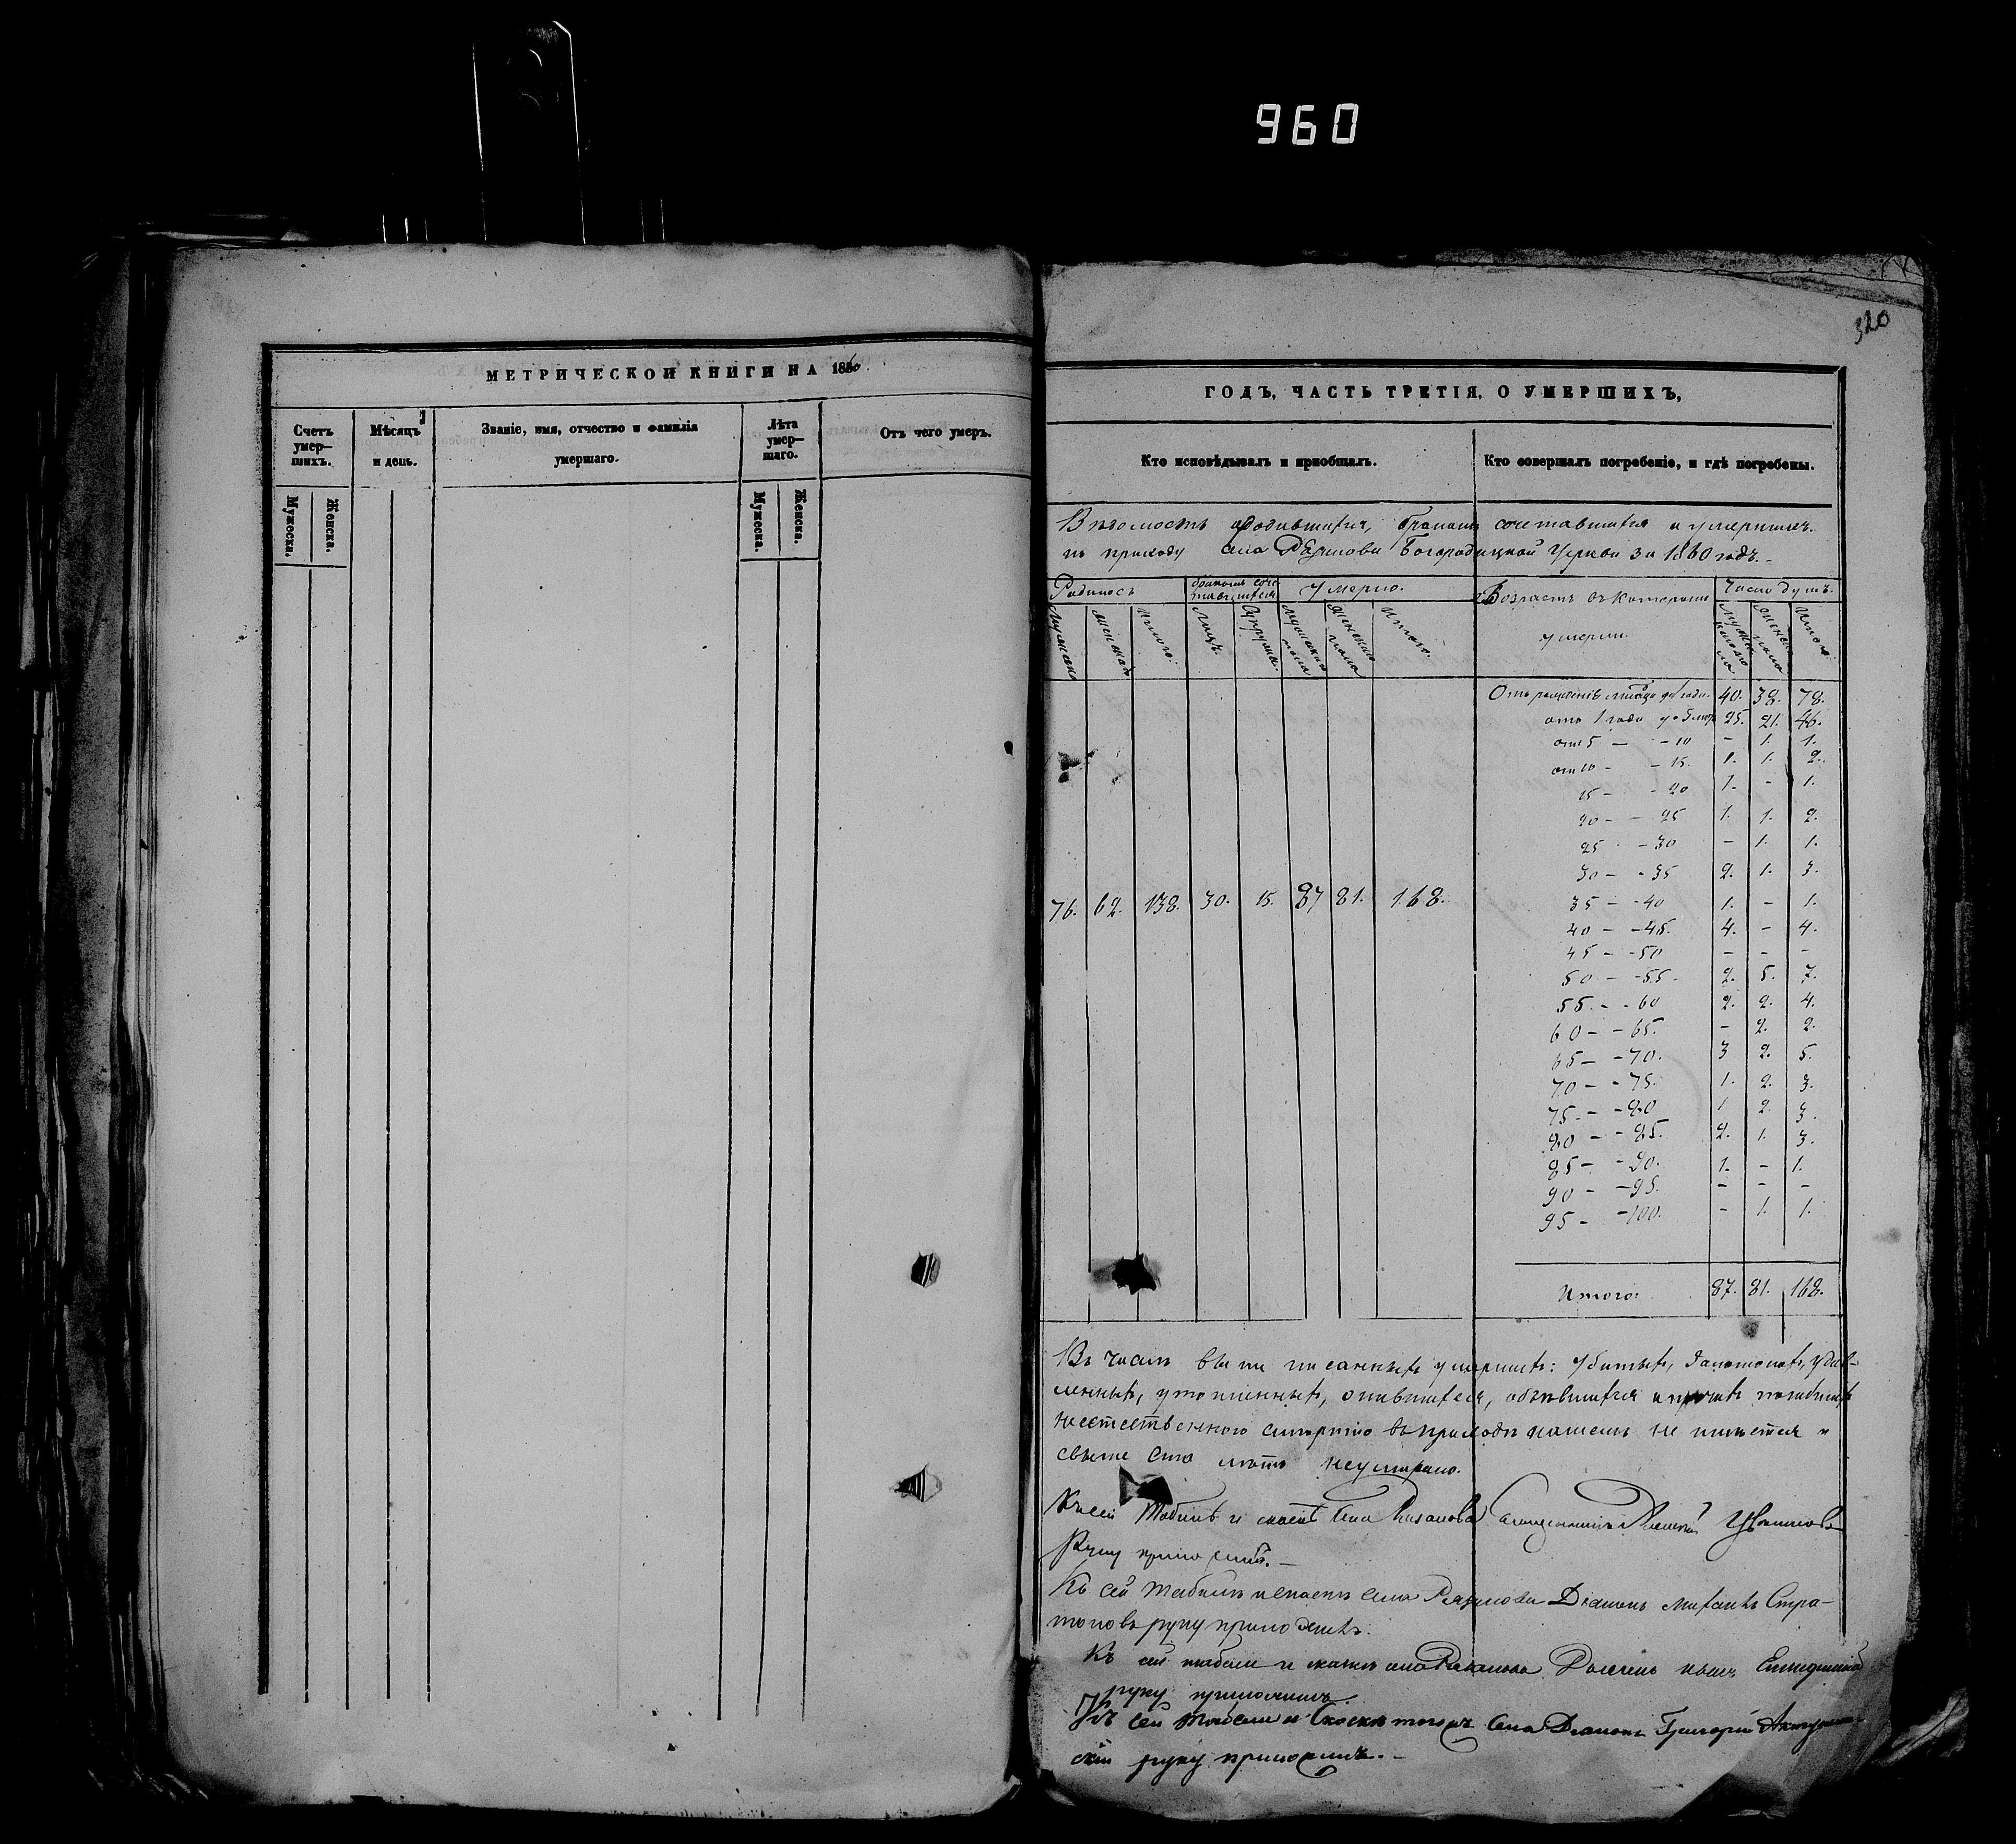 960
320
МЕТРИЧЕСКОЙ КНИГИ НА 1860
Счетъ умер-
шихъ.
Мѣсяцъ
и день.
Званіе, имя, отчество и фамилія
умершаго.
Лѣта
умер-
шаго.
Отъ чего умеръ.
Мужеска.
Женска.
Мужеска.
Женска.
ГОДЪ, ЧАСТЬ ТРЕТІЯ, О УМЕРШИХЪ,
Кто исповѣдывалъ и пріобщалъ.
Кто совершалъ погребеніе, и гдѣ погребены.
Вѣдомость о родившихся, бракомъ сочетавшихся и умершихъ
по приходу села Богородицкой Церкви за 1860 годъ. -
Родилось
бракомъ соче-
тавшихся
Умерло.
Возрастъ въ которомъ
умерли.
Число душъ.
Мужска
женска
Итого.
Лицъ.
Супруж.
Мужескаго
пола
Женскаго
пола
Итого.
Итого
76. 62. 138. 30. 15. 87 81. 168.
Отъ рожденія до года. 40. 38. 78.
отъ 1 года до 5 25. 21. 46.
отъ 5 — - 10 - 1. 1.
отъ 10 - - 15. 1. 1. 2.
15 - - 20 1. - 1.
20 - - 25 1. 1. 2.
25 - 30 - 1. 1.
30 - - 35 2. 1. 3.
35 - - 40 1. - 1.
40 - - 45. 4. - 4.
45 - - 50 - - -
50 - - 55 - 2. 5. 7.
55. - - 60 2. 2. 4.
60 - - 65. - 2. 2.
65 - - 70. 3 2. 5.
70 - - 75. 1. 2. 3.
75. - - 80 1 2. 3.
80 - - 85. 2. 1. 3.
85 - - 90. 1. - 1.
90 - - 95. - - -
95 - - 100. - 1. 1.
Итого: 87. 81. 168.
Въ числѣ вышеписанныхъ умершихъ: убитыхъ, удав-
ленныхъ, утопшихъ, опившихся, объѣвшихся и прочихъ погибшихъ
неестественною смертію въ приходѣ нашемъ не имѣется и
свыше ста лѣтъ не умирало.
Къ сей Табели и села священникъ
Руку приложилъ. -
Къ сей табели и села Діаконъ Михаилъ Стра-
тоновъ руку приложилъ.
Къ сей табели и села
руку приложилъ.
Къ сей табели и тогожъ села Діаконъ Григорій
скій руку приложилъ. -